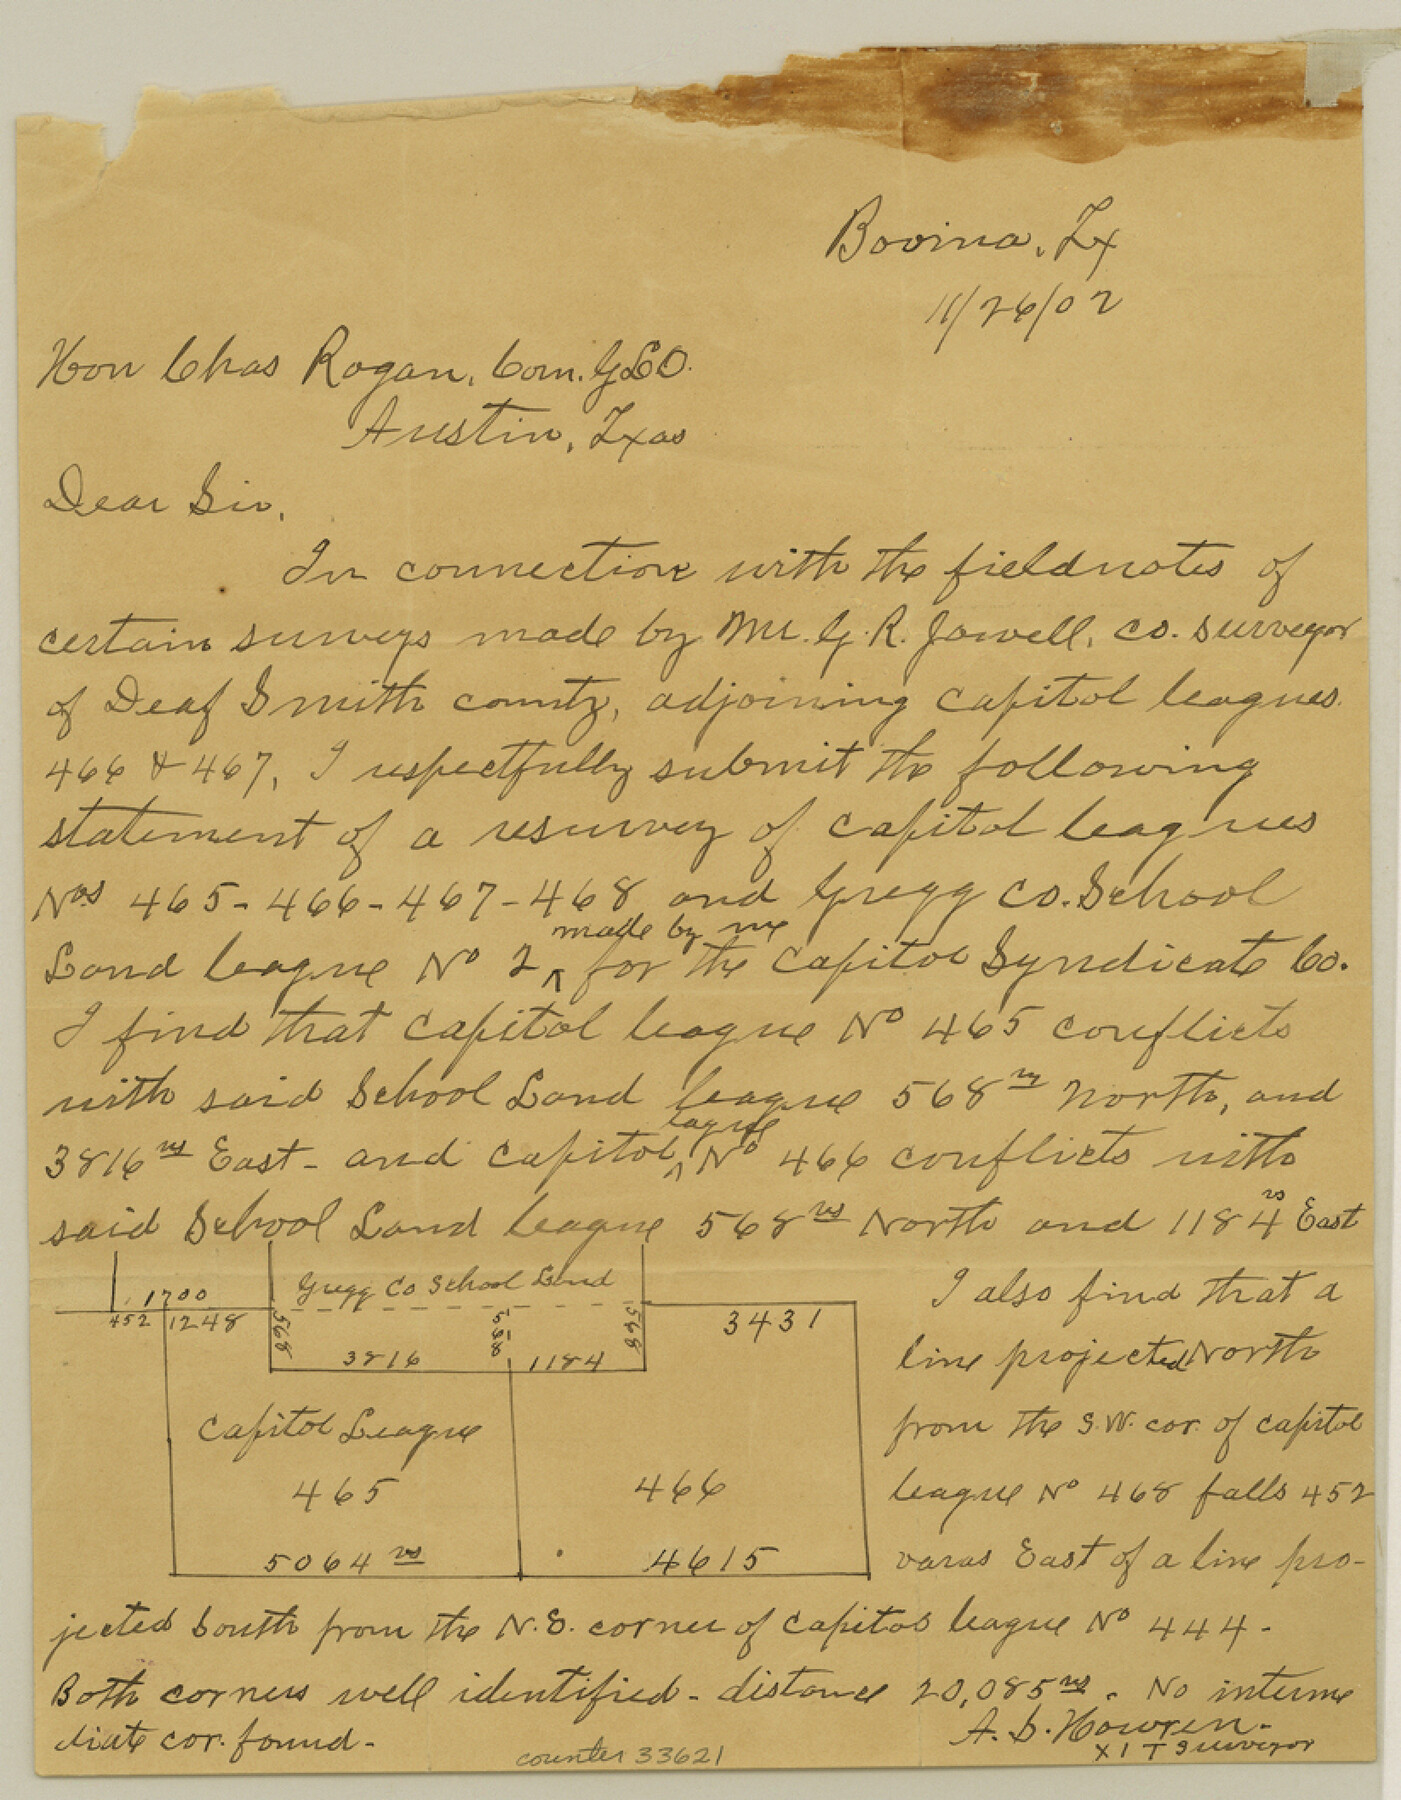 Bovina, Tx
11/26/02
Hon Chas Rogan, Com. GLO.
Austin, Txas
Dear Sir,
In connection with the fieldnotes of
certain surveys made by Mr. G. R. Jowell, co. surveyor
of Deaf Smith county, adjoining Capitol leagues
466 & 467, I respectfully submit the following
statement of a resurvey of Capitol leagues
Nos 465-466-467-468 and Gregg Co. School
made by me
Land league No 2 ^ for the Capitol Syndicate Co.
I find that Capitol league No 465 conflicts
with said School Land league 568 vrs North, and
league
3816 vs East - and Capitol ^ No 466 conflicts with
said School Land league 568 vs North and 1184 vs East
Gregg Co School Land
1700
452 1248 568 568 568 3431
3816 1184
Capitol League
465 466
5064 vs 4615
I also find that a
line projected North
from the S.W. cor. of Capitol
league No 468 falls 452
varas East of a line pro-
jected South from the N.E. corner of Capitol league No 444 -
Both corners well identified - distance 20,085 vs. No interme
diate cor. found -
A. S. Howren -
X I T Surveyor
counter 33621